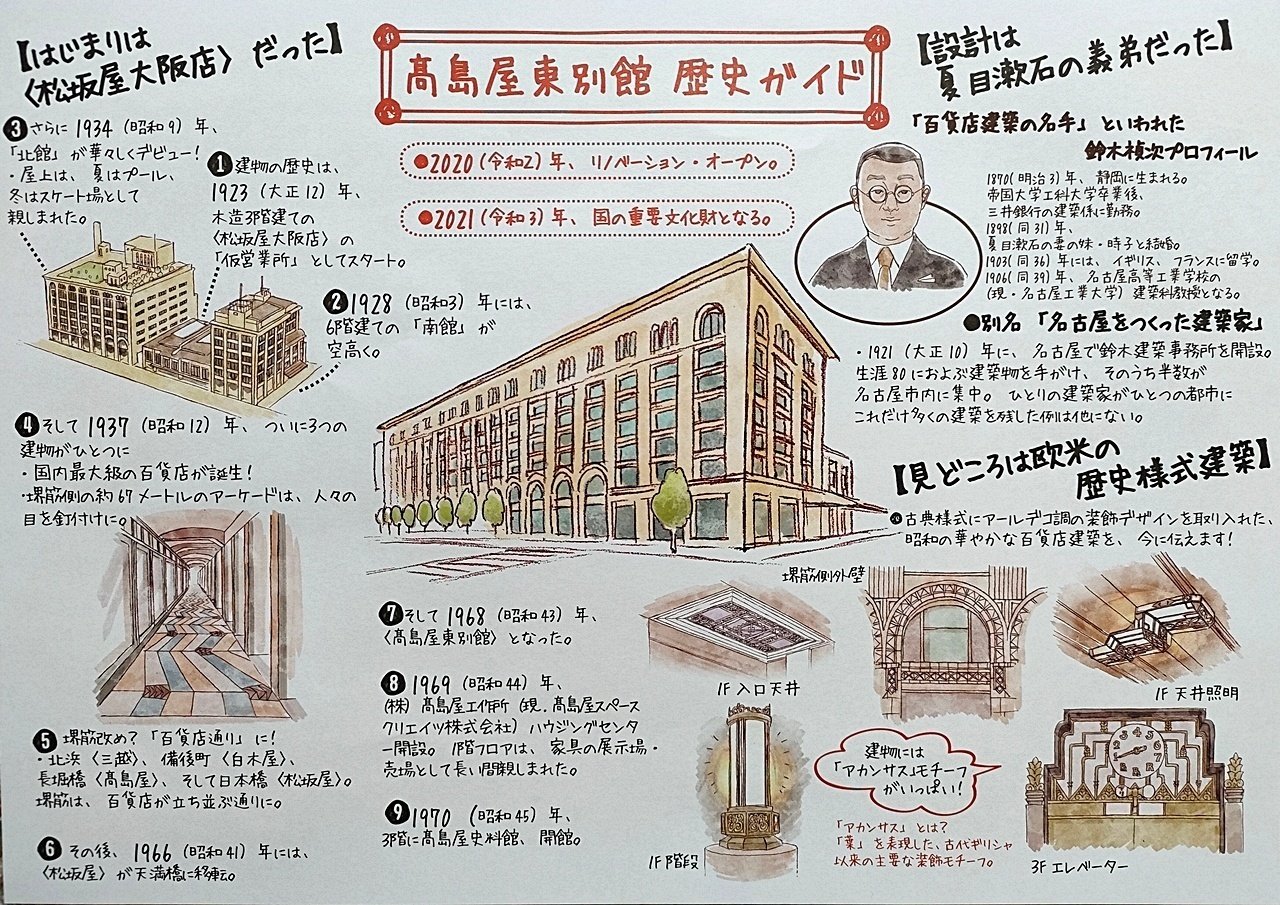 髙島屋東別館 歴史ガイド
●2020(令和2)年、リノベーション・オープン。
●2021(令和3)年、国の重要文化財となる。
【はじまりは
〈松坂屋大阪店〉だった】
❶建物の歴史は、
1923(大正12)年、
木造3階建ての
〈松坂屋大阪店〉の
「仮営業所」としてスタート。
❷1928(昭和3)年には、
6階建ての「南館」が
空高く。
❸さらに1934(昭和9)年、
「北館」が華々しくデビュー!
・屋上は、夏はプール、
冬はスケート場として
親しまれた。
❹そして1937(昭和12)年、ついに3つの
建物がひとつに
・国内最大級の百貨店が誕生!
・堺筋側の約67メートルのアーケードは、人々の
目を釘付けに。
❺堺筋改め?「百貨店通り」に!
・北浜〈三越〉、備後町〈白木屋〉、
長堀橋〈髙島屋〉、そして日本橋〈松坂屋〉。
堺筋は、百貨店が立ち並ぶ通りに。
❻その後、1966(昭和41)年には、
〈松坂屋〉が天満橋に移転。
❼そして1968(昭和43)年、
〈髙島屋東別館〉となった。
❽1969(昭和44)年、
(株)髙島屋工作所(現.髙島屋スペース
クリエイツ株式会社)ハウジングセンタ
ー開設。1階フロアは、家具の展示場・
売場として長い間親しまれた。
❾1970(昭和45)年、
3階に髙島屋史料館、開館。
【設計は
夏目漱石の義弟だった】
「百貨店建築の名手」といわれた
鈴木禎次プロフィール
1870(明治3)年、静岡に生まれる。
帝国大学工科大学卒業後、
三井銀行の建築係に勤務。
1898(同31)年、
夏目漱石の妻の妹・時子と結婚。
1903(同36)年には、イギリス、フランスに留学。
1906(同39)年、名古屋高等工業学校の
(現・名古屋工業大学)建築科教授となる。
●別名「名古屋をつくった建築家」
・1921(大正10)年に、名古屋で鈴木建築事務所を開設。
生涯80におよぶ建築物を手がけ、そのうち半数が
名古屋市内に集中。ひとりの建築家がひとつの都市に
これだけ多くの建築を残した例は他にない。
【見どころは欧米の
歴史様式建築】
●古典様式にアールデコ調の装飾デザインを取り入れた、
昭和の華やかな百貨店建築を、今に伝えます!
堺筋側外壁
1F入口天井
1F天井照明
1F階段
建物には
「アカンサス」モチーフ
がいっぱい!
「アカンサス」とは?
「葉」を表現した、古代ギリシャ
以来の主要な装飾モチーフ。
1 2 3 4 5 6 7 8
3Fエレベーター